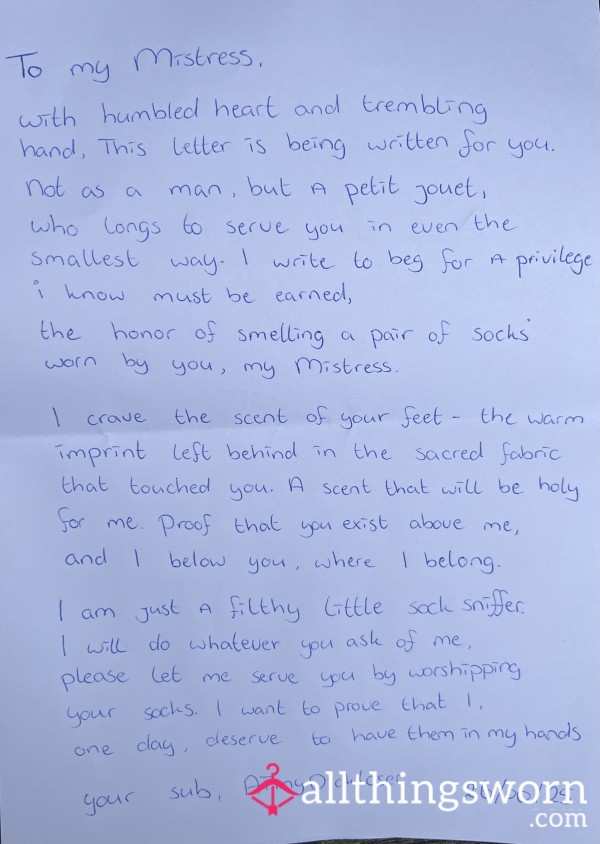 To my Mistress,
with humbled heart and trembling
hand, This letter is being written for you.
Not as a man, but A petit jouet,
who longs to serve you in even the
smallest way. I write to beg for A privilege
i know must be earned,
the honor of smelling a pair of socks
worn by you, my Mistress.
I crave the scent of your feet - the warm
imprint left behind in the sacred fabric
that touched you. A scent that will be holy
for me. Proof that you exist above me,
and I below you, where I belong.
I am just A filthy little sock sniffer.
I will do whatever you ask of me,
please let me serve you by worshipping
your socks. I want to prove that I,
one day, deserve to have them in my hands
your sub,
allthingsworn
.com